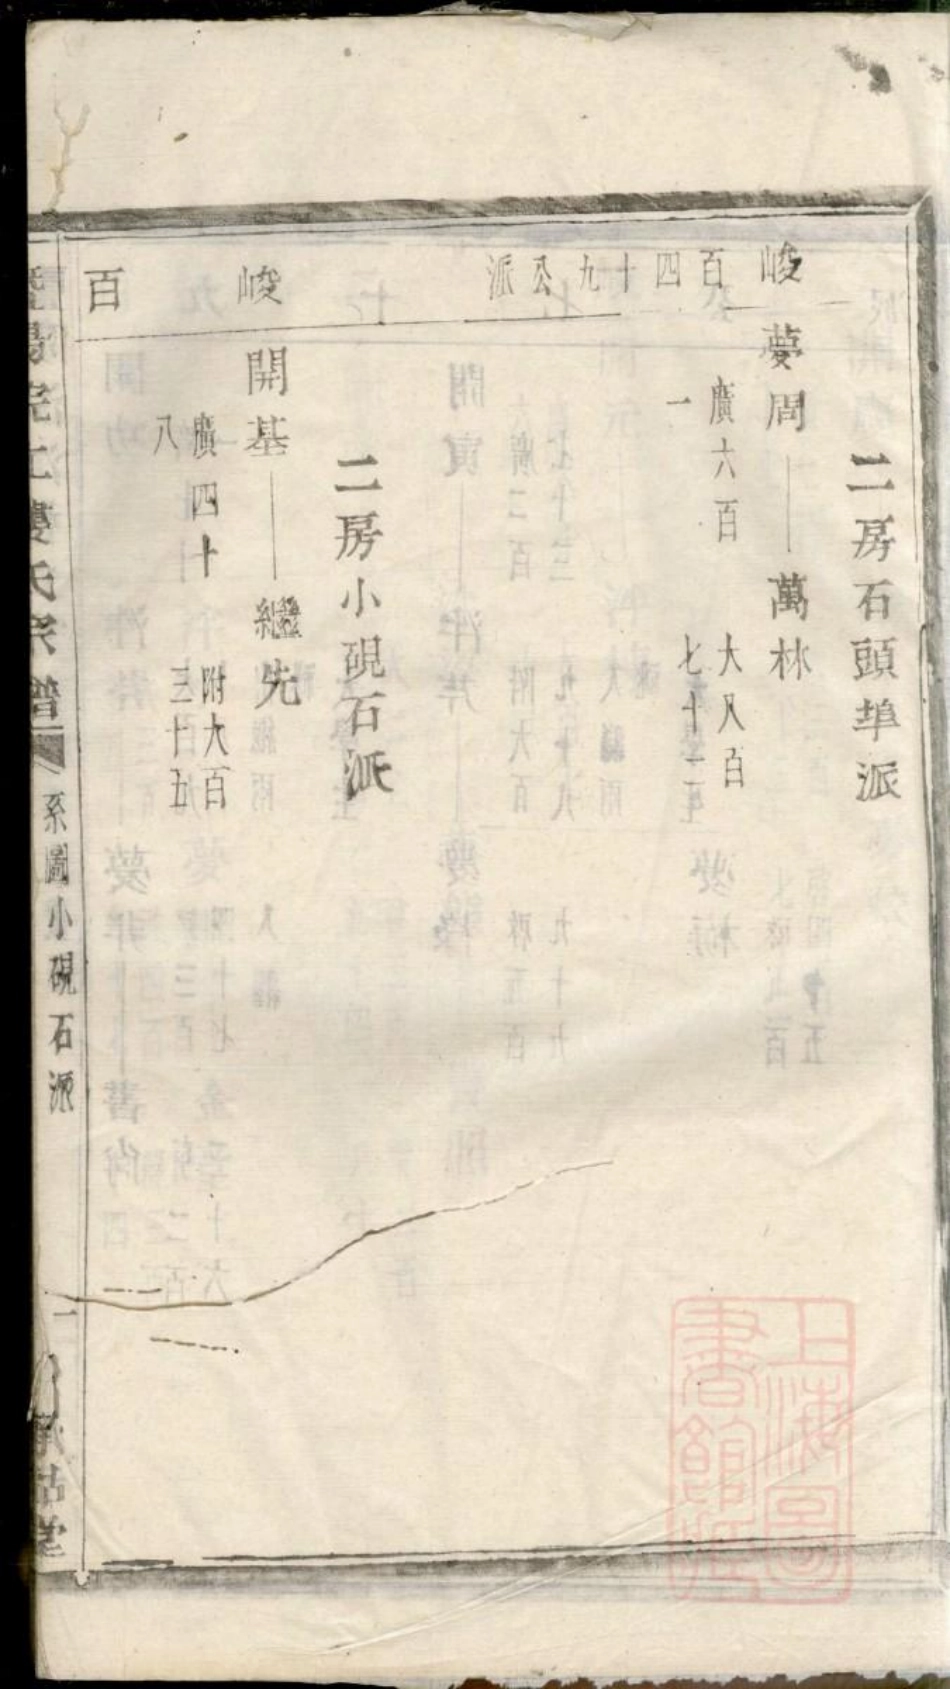 二房石頭埠派
峻
百四十九公派
夢周
廣六百
一
萬林
大八百
七十二
二房小硯石派
峻
開基
廣四十
八
繼先
附大百
三十五
百
系圖小硯石派
一
上海圖
書館藏